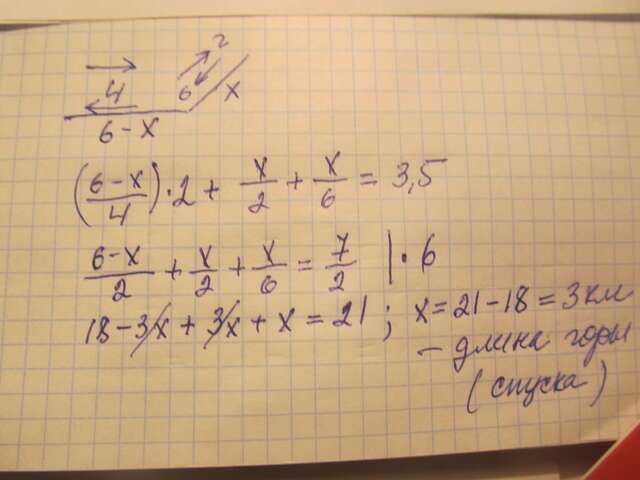 2
4
6
x
6-x
(6-x/4)·2 + x/2 + x/6 = 3,5
6-x/2 + x/2 + x/6 = 7/2 |·6
18-3x + 3x + x = 21; x=21-18=3км
- длина горы
(спуска)